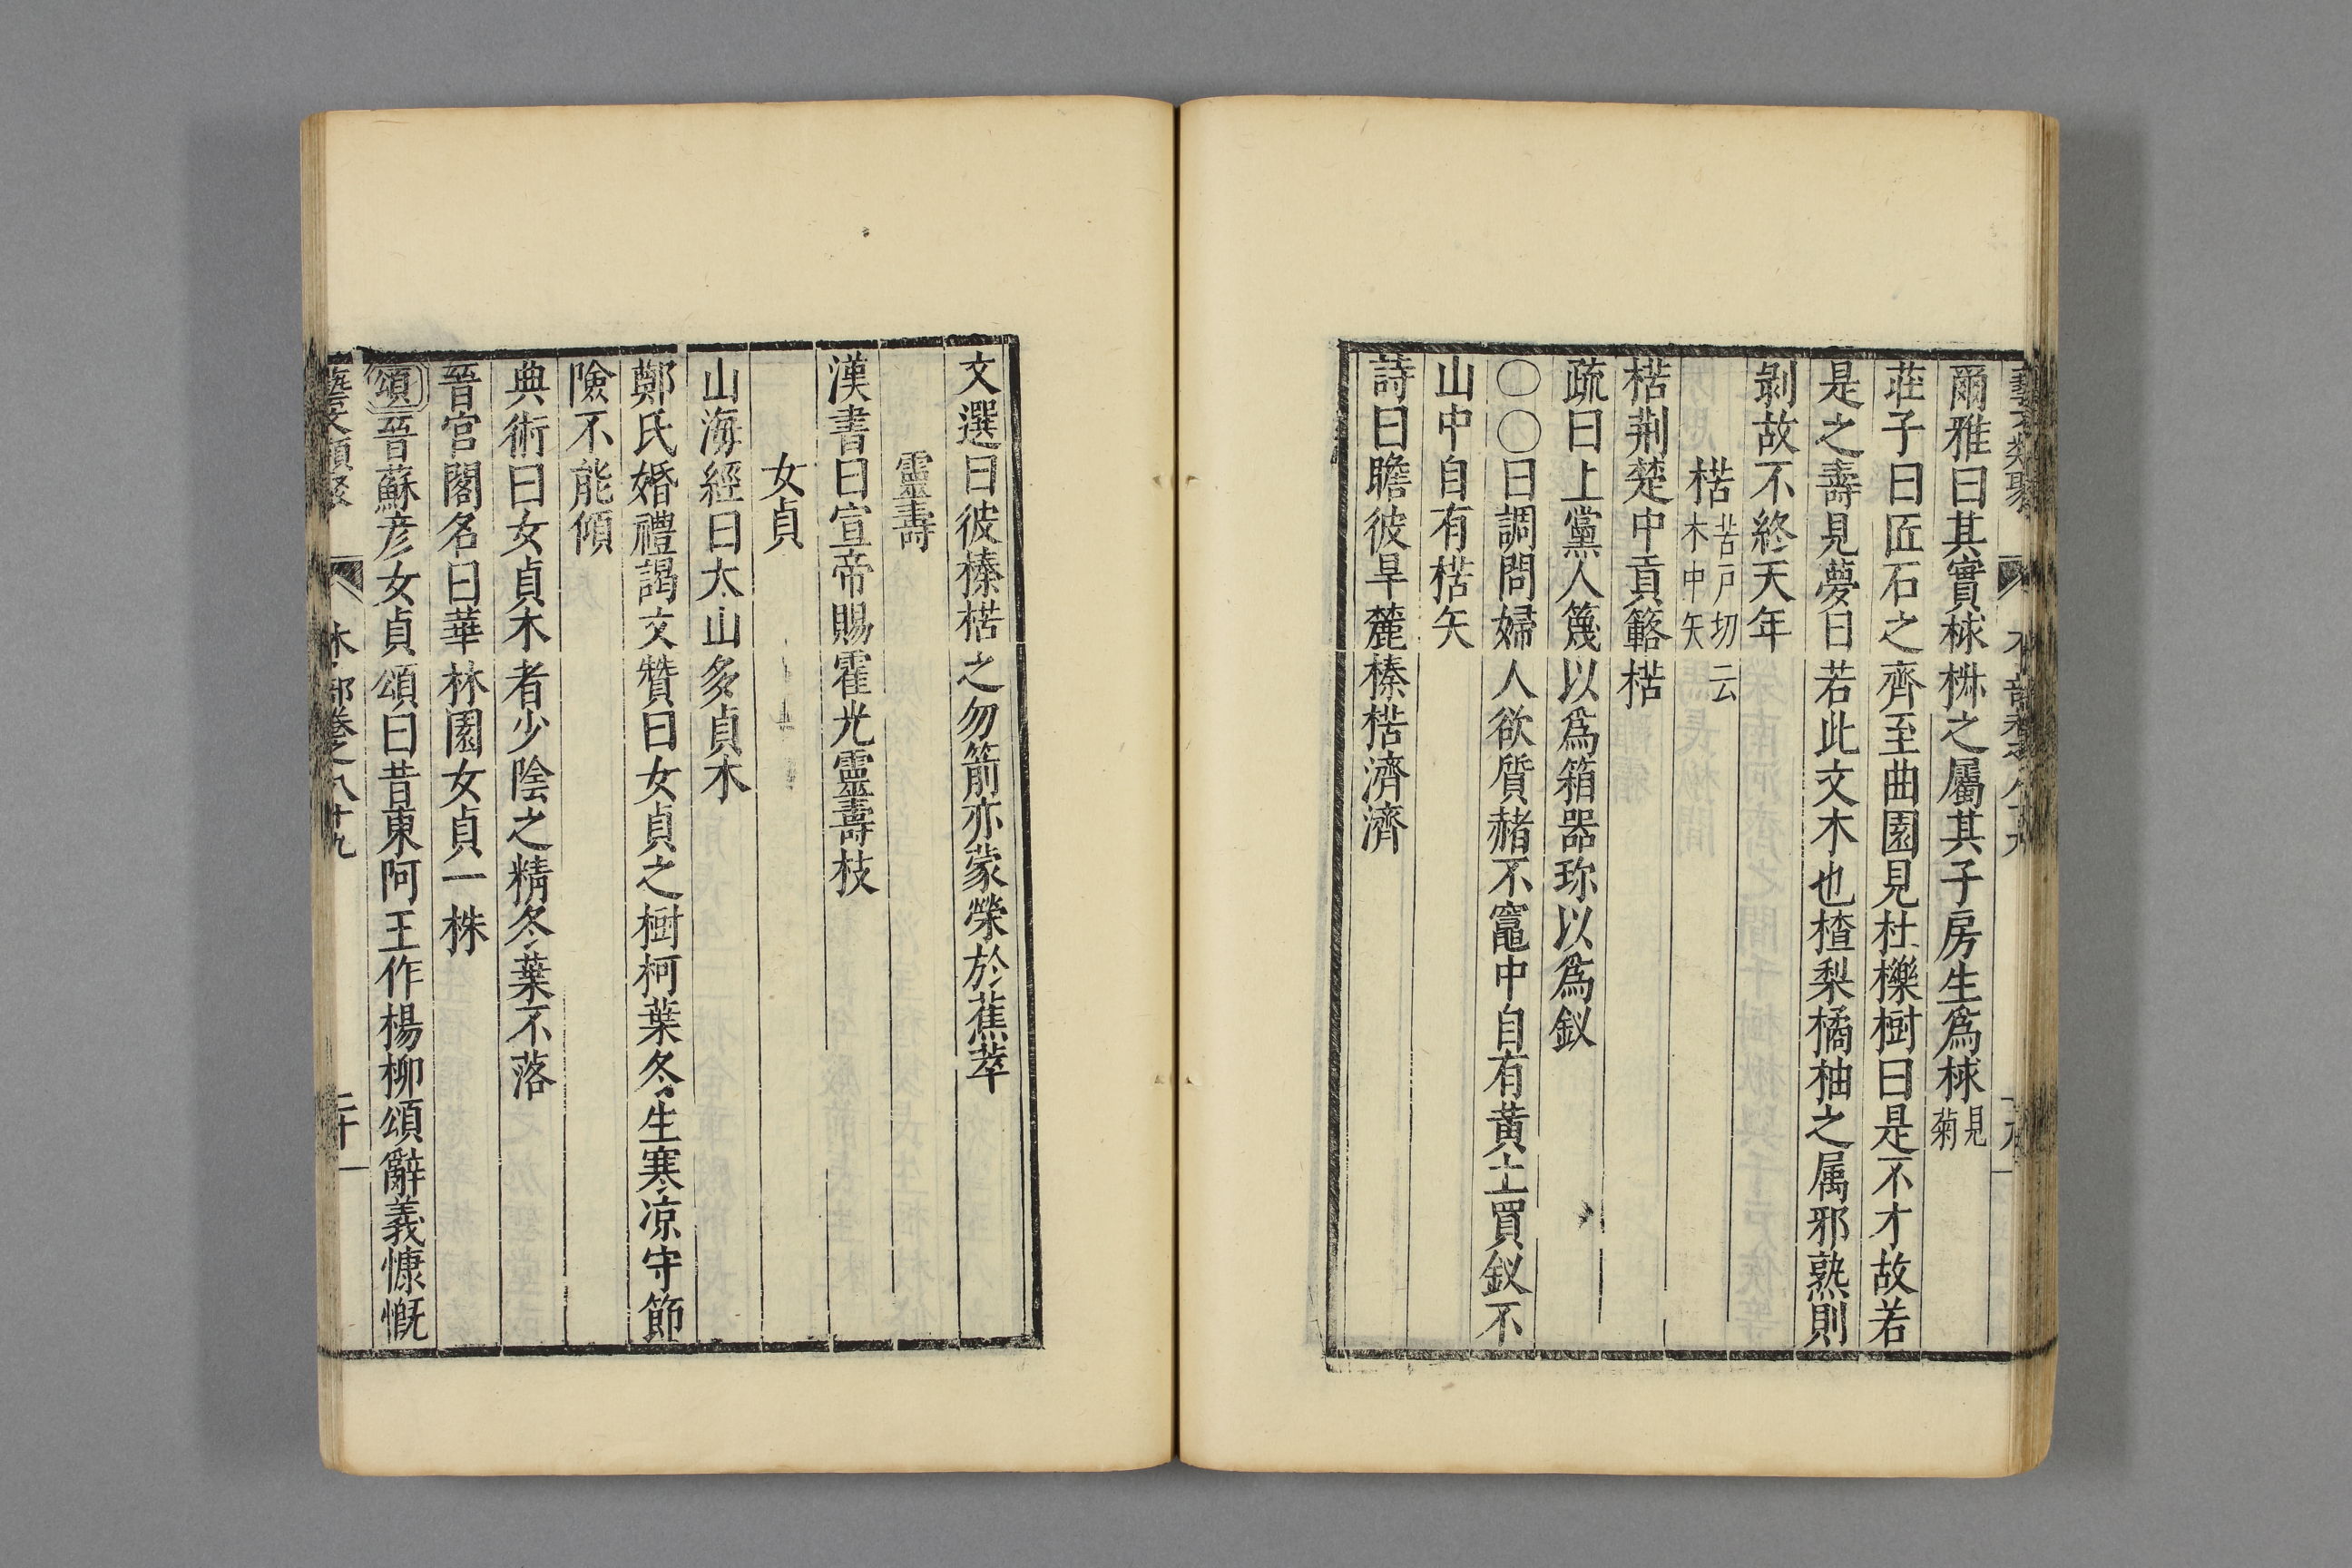 爾雅曰其實梂椕之屬其子房生爲梂見菊
荘子曰匠石之齊至曲園見杜櫟樹曰是不才故若
是之壽見夢曰若此文木也楂梨橘柚之属邪熟則
剝故不終天年
楛苦戸切云木中矢
楛荆楚中貢簵楛
疏曰上黨人篾以爲箱器珎以爲釵
〇〇曰調問婦人欲質赭不竈中自有黄土買釵不
山中自有楛矢
詩曰瞻彼旱麓榛楛濟濟
文選曰彼榛楛之勿箭亦蒙榮於蕉萃
靈壽
漢書曰宣帝賜霍光靈壽枝
女貞
山海經曰太山多貞木
鄭氏婚禮謁文贊曰女貞之樹柯葉冬生寒凉守節
險不能傾
典術曰女貞木者少陰之精冬葉不落
晉宮閣名曰華林園女貞一株
頌晉蘇彦女貞頌曰昔東阿王作楊柳頌辭義慷慨
藝文類聚 木部卷之八十九